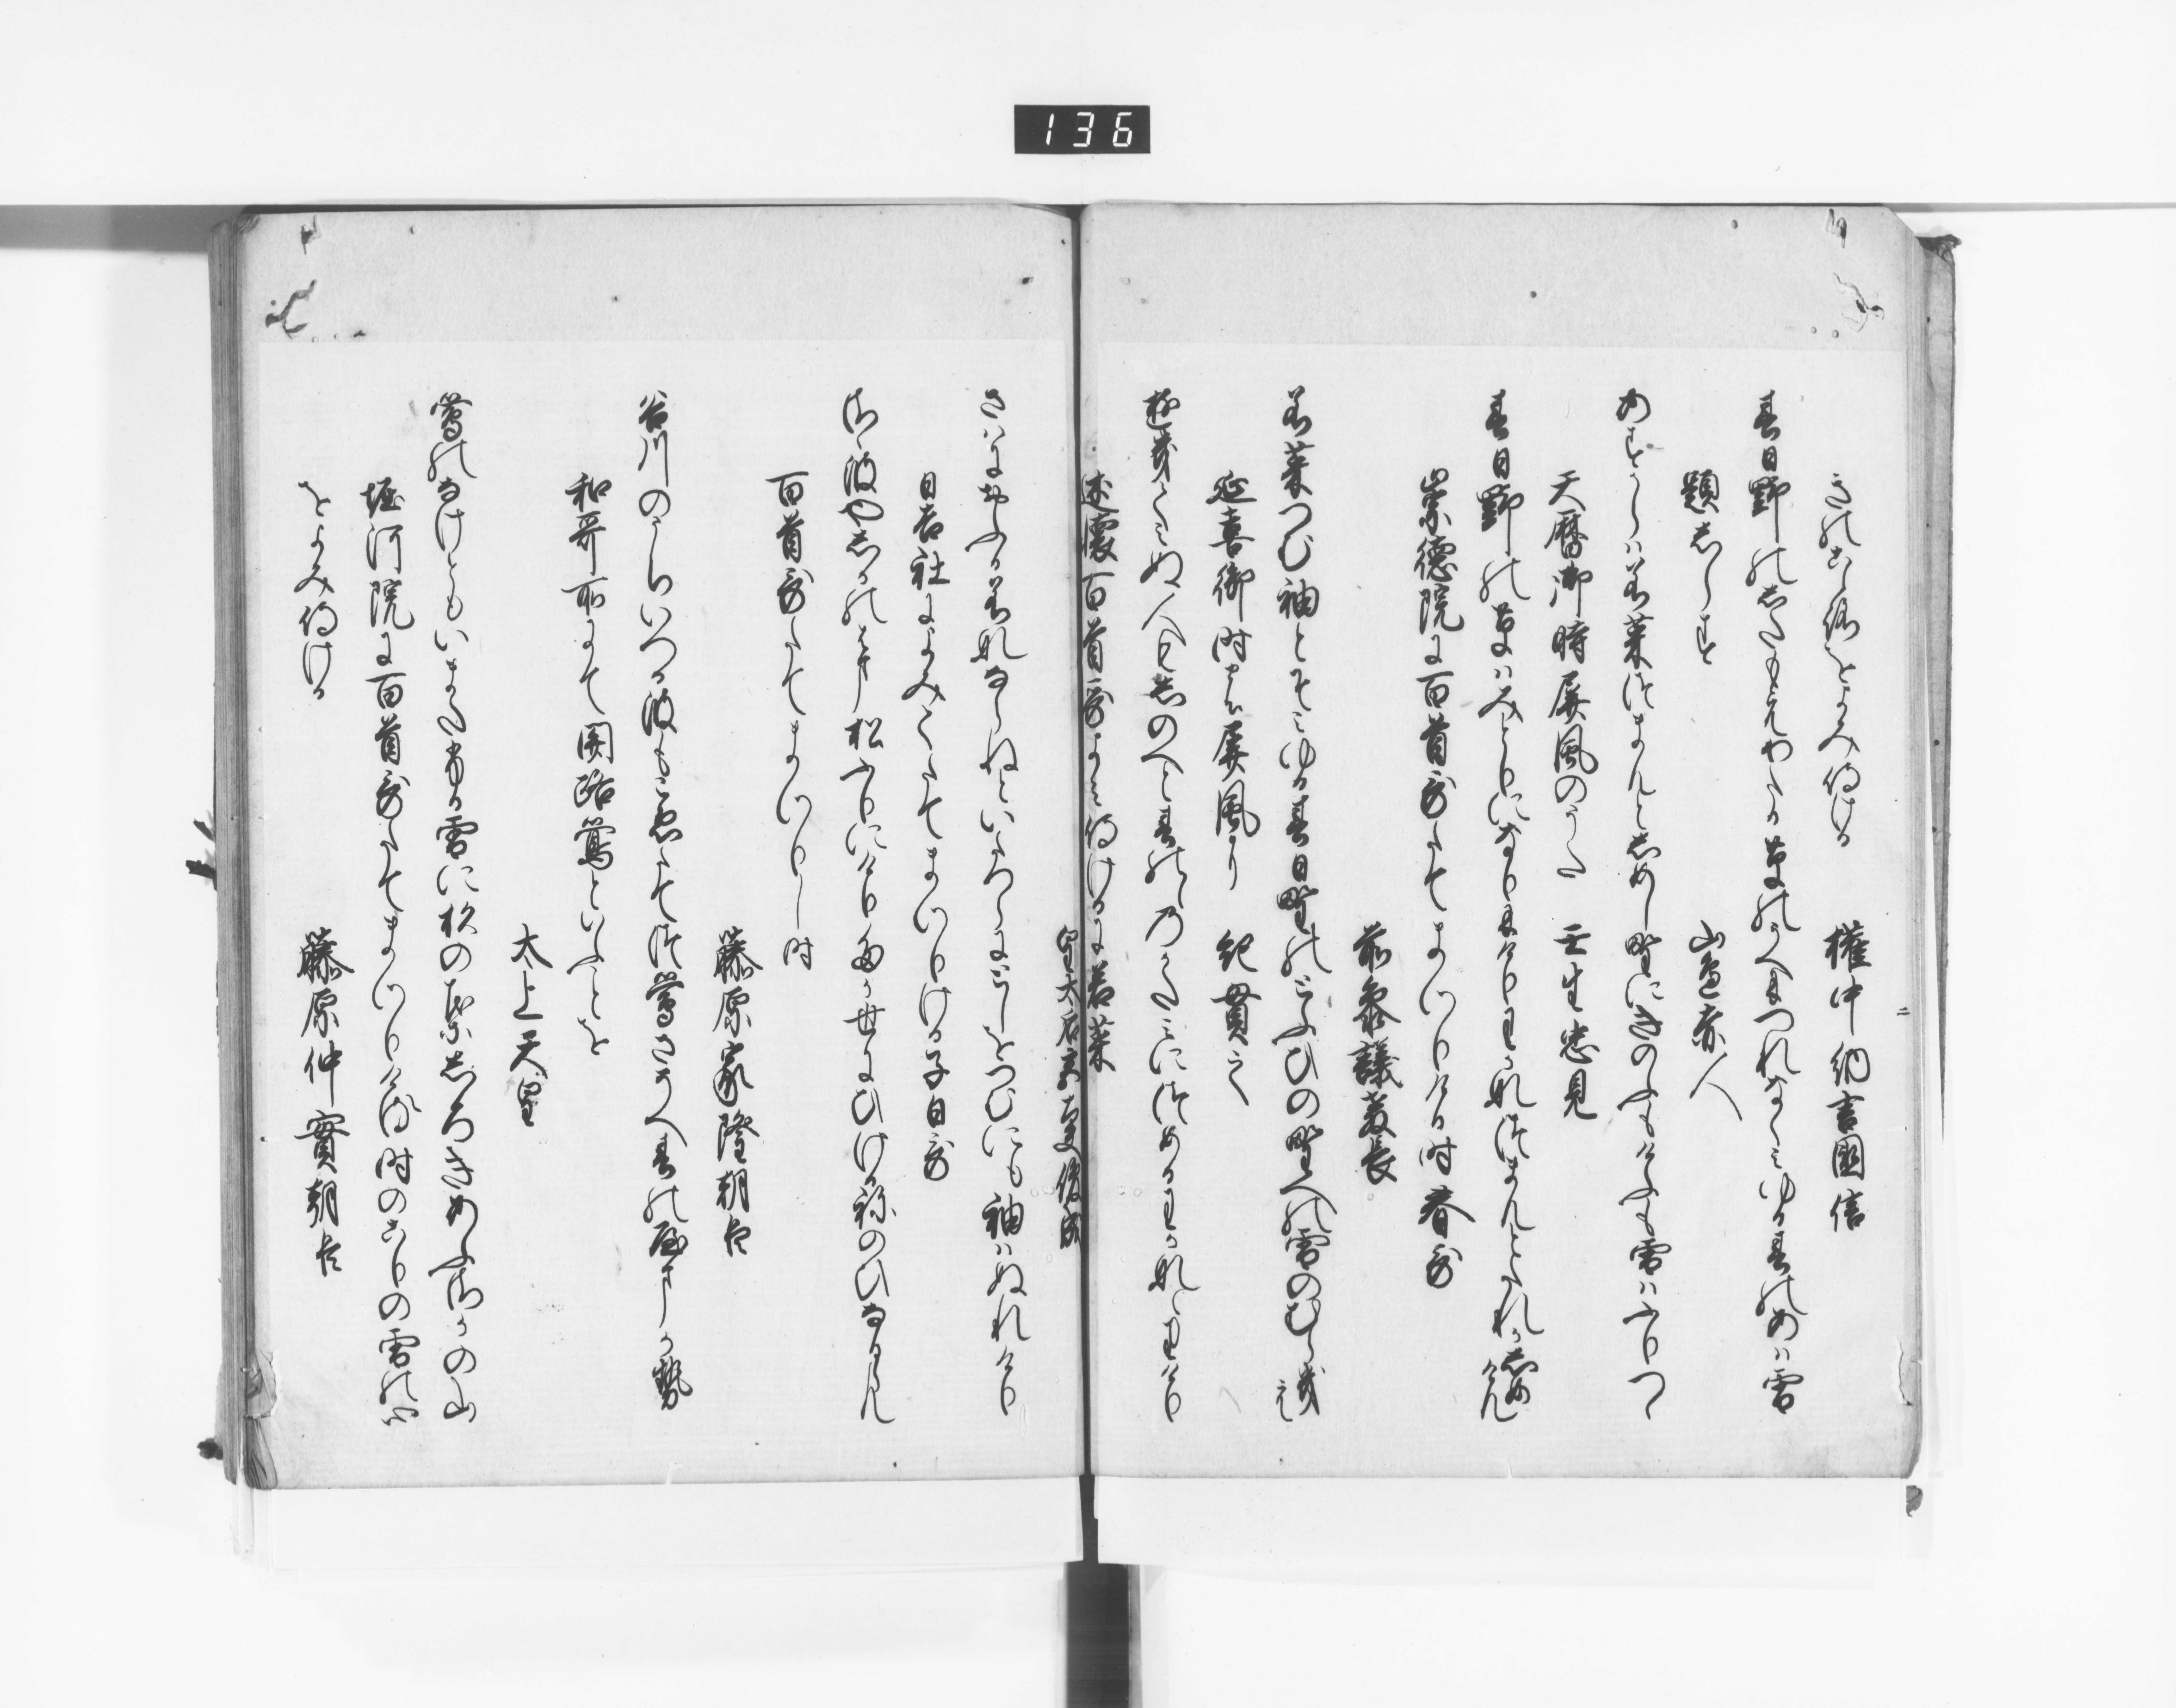 136
きのこゝろをよみ侍ける
権中納言國信
春日野のしたもえわたる草のうへにつれなくみゆる春のあは雪
題しらす
山邉赤人
あすからは若菜つまんとしめし野にきのふもけふも雪はふりつゝ
天暦御時屏風のうた
壬生忠見
春日野の草はみとりになりにけりわかなつまんとたれかしめけん
崇徳院に百首哥たてまつりける時春哥
前参議教長
若菜つむ袖とそみゆる春日野のとふひの野へのむら消
延喜御時の屏風に
紀貫之
述懐百首哥よみ侍けるに若菜
皇太后宮大夫俊成
さはにおふる若なならねといたつらにとしをつむにも袖はぬれけり
日吉社によみてたてまつりける子日哥
さゝ波やしかのはま松ふりにけりたか世にひける子の日なるらん
百首哥たてまつりし時
藤原家隆朝臣
谷川のうちいつる波もこゑたてつ鶯さそへ春の山かせ
和哥所にて関路鶯といふことを
太上天皇
鶯のなけともいまたふる雪に杉の葉しろきあふさかの山
堀河院に百首哥たてまつりける時のこりの雪の心
をよみ侍ける
藤原仲實朝臣